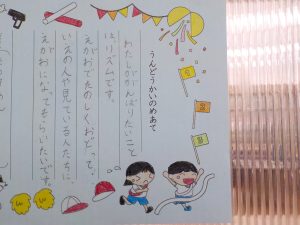 うんどうかいのめあて
わたしががんばりたいこと
は、リズムです。
えがおでたのしくおどって、
いえの人や見ている人たちに、
えがおになってもらいたいです。